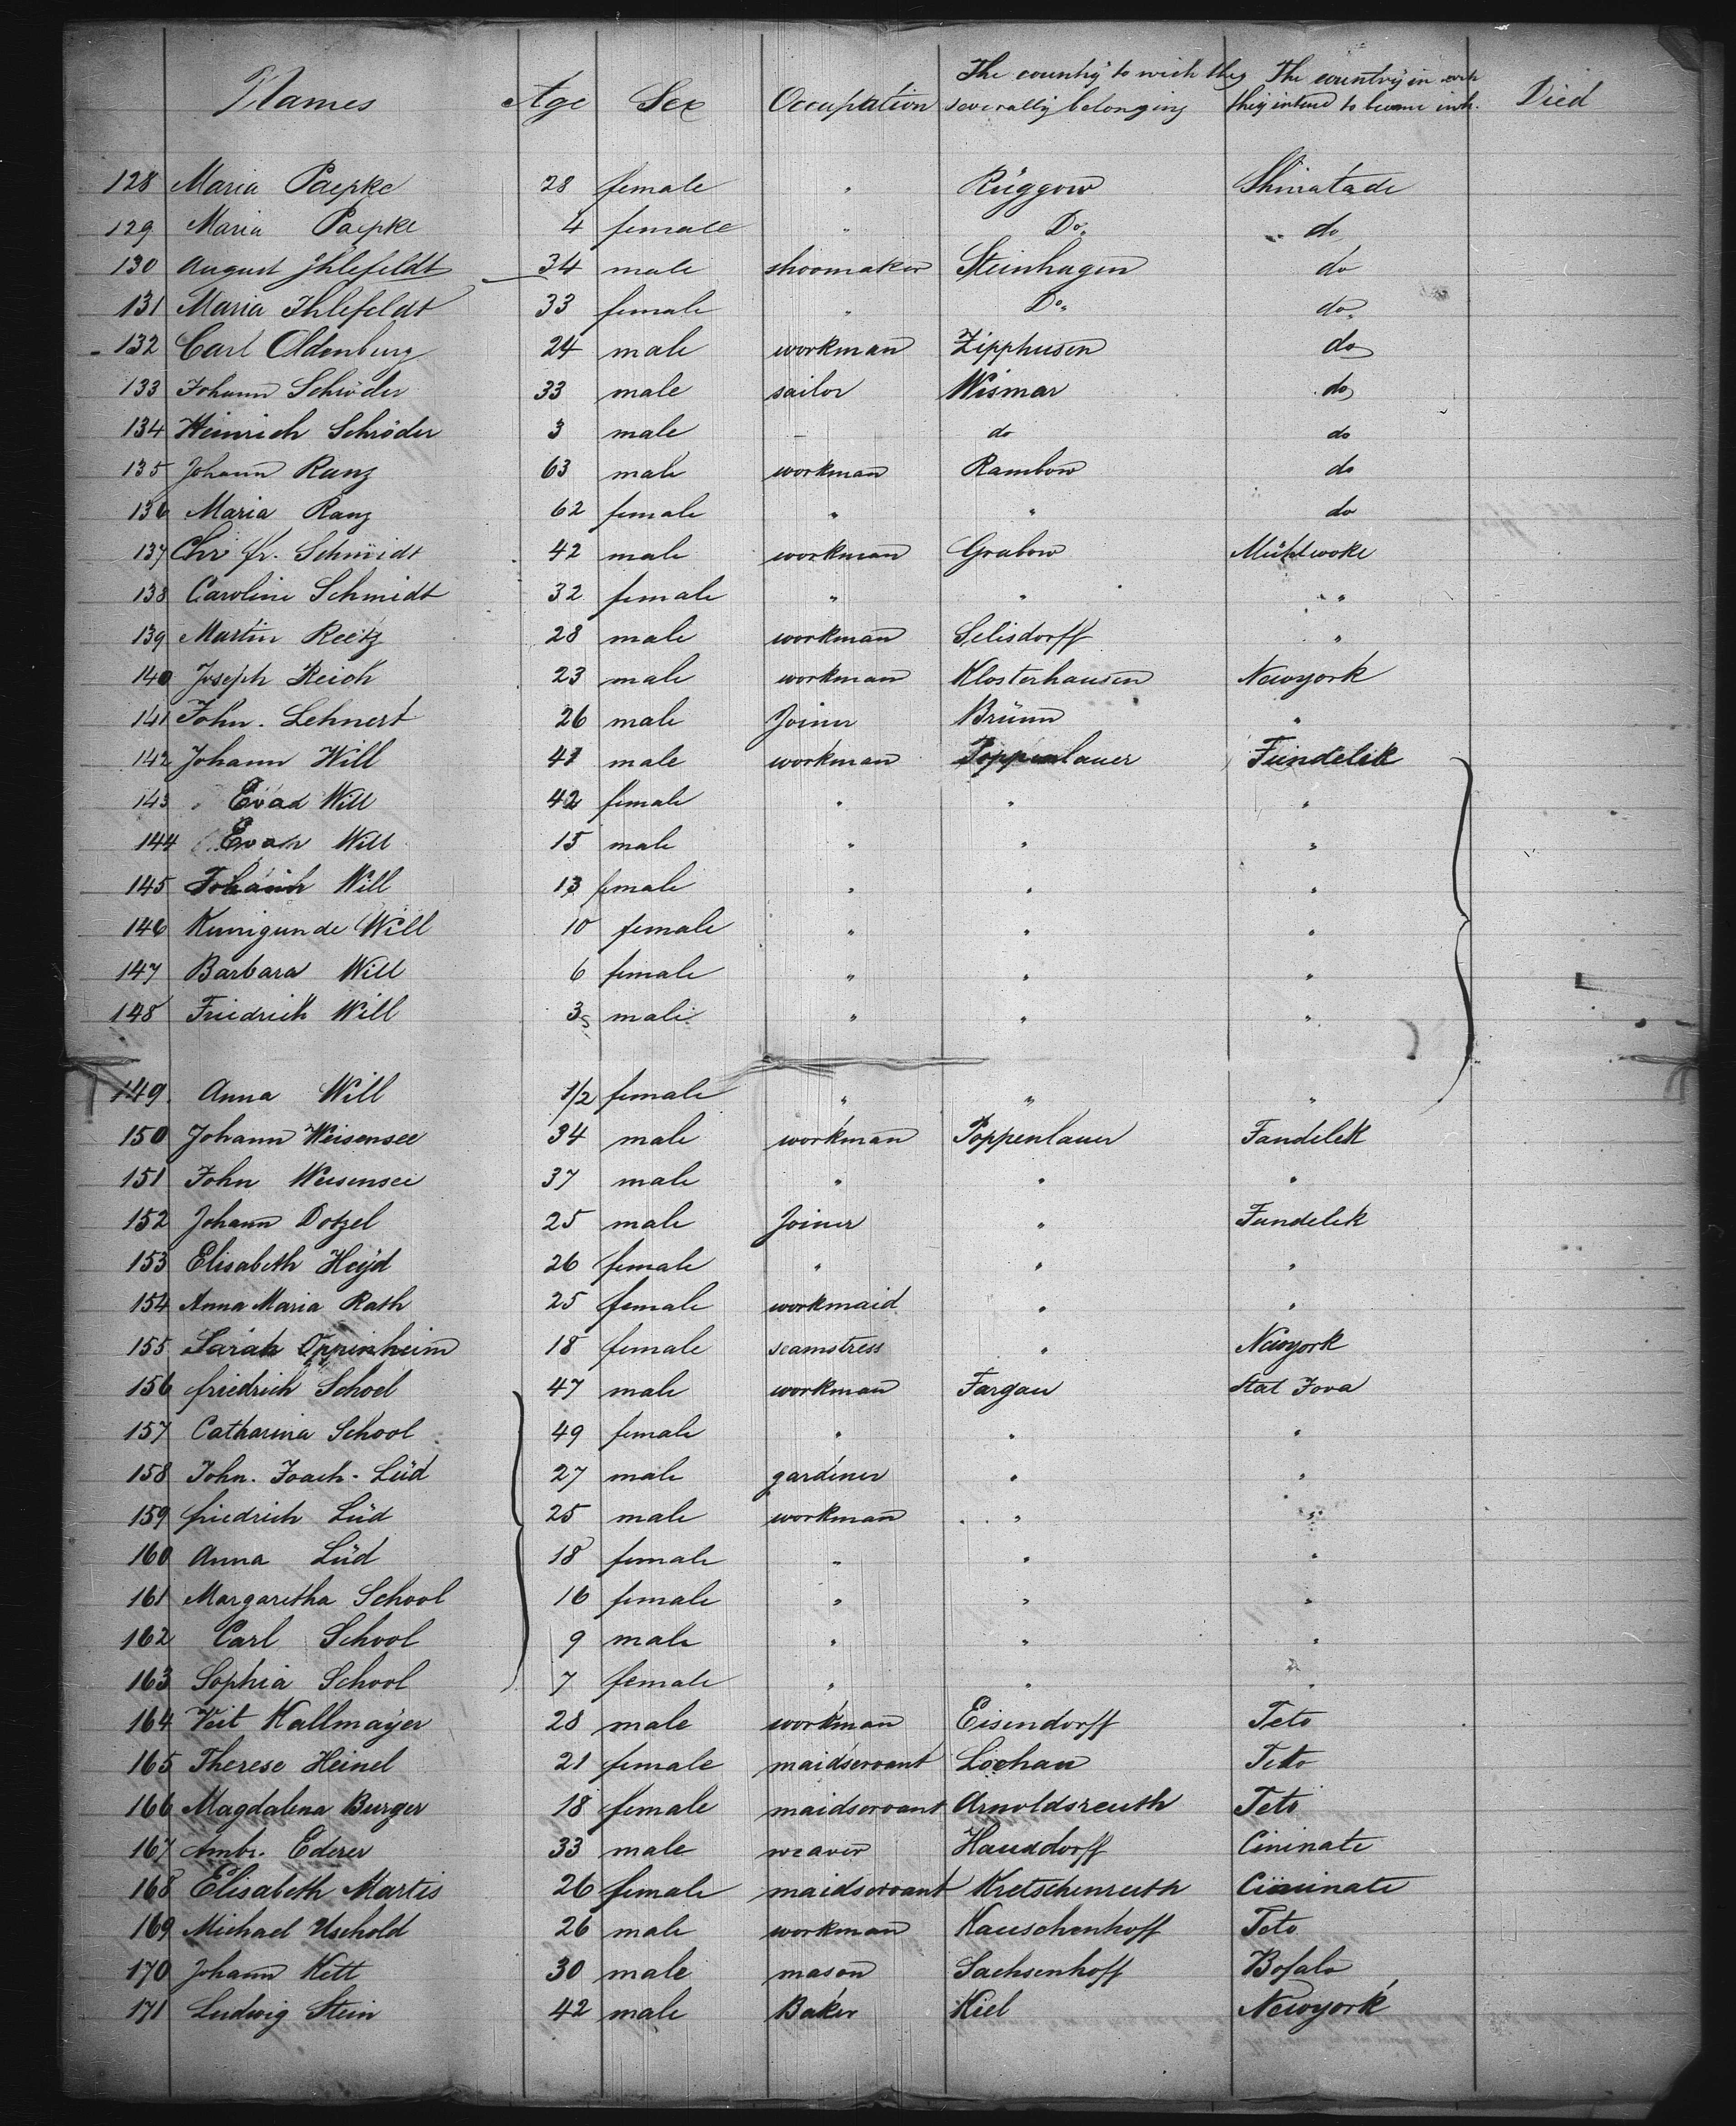 Names Age Sex Occupation The country to wich they severally belonging The country in wich they intend to become inh. Died
128 Maria Paepke 28 female " Rüggow Shiratade
129 Maria Paepke 4 female " Do. do
130 August Jhlefeldt 34 male shoomaker Steinhagen do
131 Maria Ihlefeldt 33 female " Do. do.
132 Carl Oldenburg 24 male workman Zipphusen do
133 Johann Schröder 33 male sailor Wismar do
134 Heinrich Schröder 3 male - do do
135 Johann Ranz 63 male workman Rambow do
136 Maria Ranz 62 female " " do
137 Chr fr. Schmidt 42 male workman Grabow Mühlwoke
138 Caroline Schmidt 32 female " " "
139 Martin Reetz 28 male workman Selisdorff "
140 Joseph Reich 23 male workman Klosterhausen Newyork
141 John. Lehnert 26 male Joiner Brünn "
142 Johann Will 41 male workman Poppenlauer Fundelek
143 Evad Will 42 female " " "
144 Evan Will 15 male " " "
145 Johann Will 13 female " " "
146 Kunigunde Will 10 female " " "
147 Barbara Will 6 female " " "
148 Friedrich Will 3 male " " "
149. Anna Will 1/2 female " " "
150 Johann Weisensee 34 male workman Poppenlauer Fandelek
151 John Weisensee 37 male " " "
152 Johann Dotzel 25 male Joiner " Fundelek
153 Elisabeth Heyd 26 female " " "
154 Anna Maria Rath 25 female workmaid " "
155 Sarah Oppinheim 18 female seamstress " Newyork
156 friedrich School 47 male workman Fargau Stat Jova
157 Catharina School 49 female " " "
158 John. Joach. Lüd 27 male gardiner " "
159 friedrich Lüd 25 male workman " "
160 Anna Lüd 18 female " " "
161 Margaretha School 16 female " " "
162 Carl School 9 male " " "
163 Sophia School 7 female " " "
164 Veit Kallmayer 28 male workman Eisendorff Teto
165 Therese Heinel 21 female maidservant Lochau Teto
166 Magdalena Burger 18 female maidservant Arnoldsreuth Teto
167 Ambr. Ederer 33 male weaver Hauxdorff Cininate
168 Elisabeth Martis 26 female maidservant Kretschenreuth Cininate
169 Michael Uschold 26 male workman Kauschenhoff Teto
170 Johann Kett 30 male mason Sachsenhoff Bofalo
171 Ludwig Stein 42 male Baker Kiel Newyork